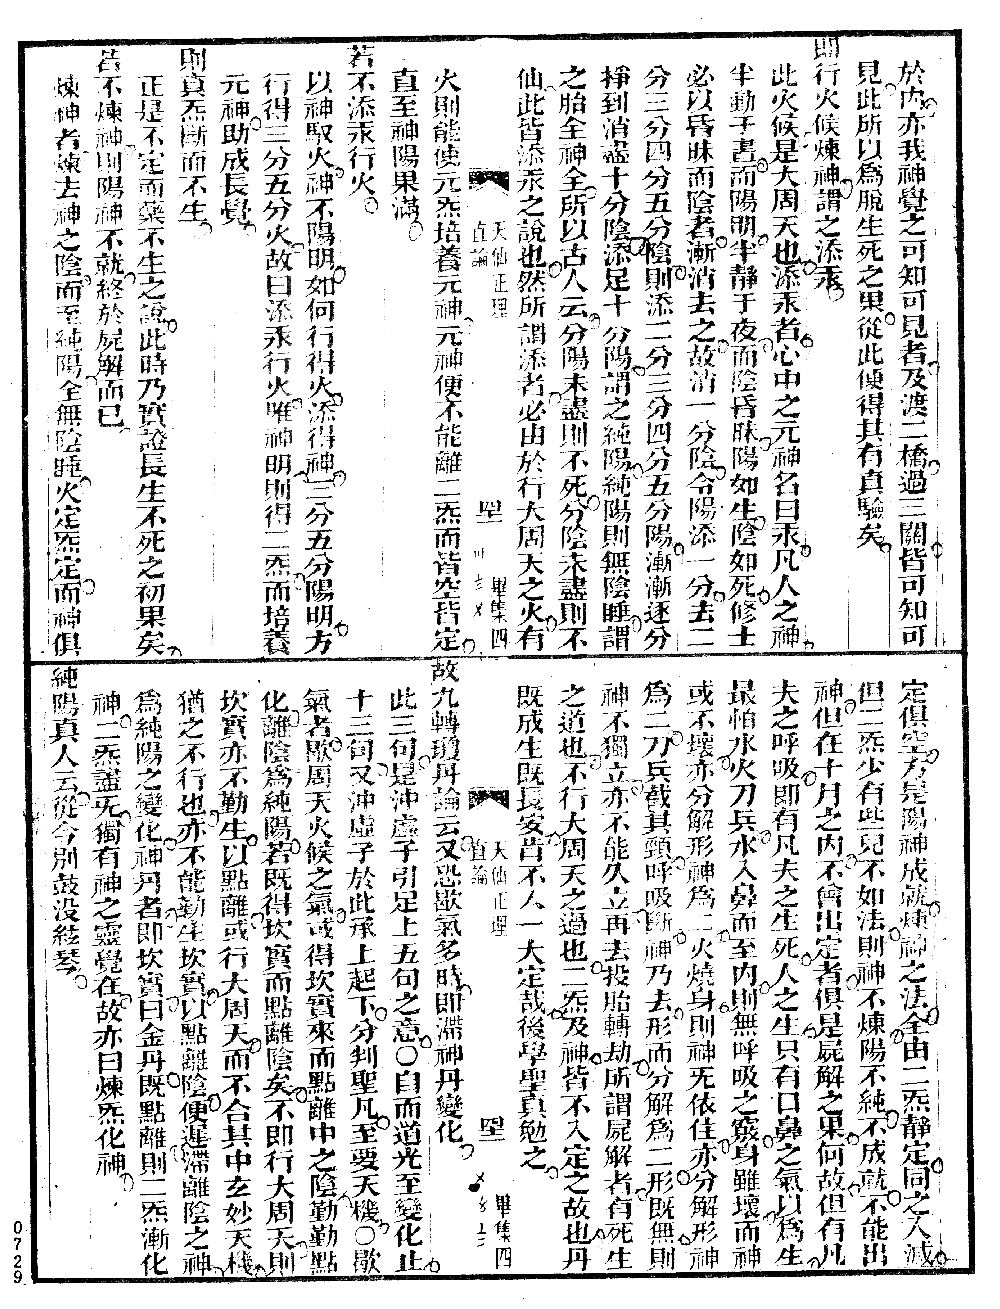 於內亦我神覺之可知可見者及渡二橋過三關皆可知可
見此所以為脫生死之果從此便得其有真驗矣
即行火候煉神謂之添汞
此火候是大周天也添汞者心中之元神名曰汞凡人之神
半動于晝而陽明半靜于夜而陰昏昧陽如生陰如死修士
必以昏昧而陰者漸消去之故消一分陰令陽添一分去二
分三分四分五分陰則添二分三分四分五分陽漸漸逐分
掙到消盡十分陰添足十分陽謂之純陽純陽則無陰睡謂
之胎全神全所以古人云分陽未盡則不死分陰未盡則不
仙此皆添汞之說也然所謂添者必由於行大周天之火有
天仙正理
直論
畢集四
火則能使元炁培養元神元神便不能離二炁而皆空皆定
直至神陽果滿
若不添汞行火
以神馭火神不陽明如何行得火添得神三分五分陽明方
行得三分五分火故曰添汞行火雖神明則得二炁而培養
元神助成長覺
則真炁斷而不生
正是不定而藥不生之說此時乃實證長生不死之初果矣
若不煉神則陽神不就終於屍解而已
煉神者煉去神之陰而至純陽全無陰睡火定炁定而神俱
定俱空方是陽神成就煉神之法全由二炁靜定同之入滅
但二炁少有些兒不如法則神不煉陽不純不成就不能出
神但在十月之內不曾出定者俱是屍解之果何故但有凡
夫之呼吸即有凡夫之生死人之生只有口鼻之氣以為生
最怕水火刀兵水入鼻而至內則無呼吸之竅身雖壞而神
或不壞亦分解形神為二火燒身則神旡依住亦分解形神
為二刀兵截其頸呼吸斷神乃去形而分解為二形既無則
神不獨立亦不能久立再去投胎轉劫所謂屍解者有死生
之道也不行大周天之過也二炁及神皆不入定之故也丹
既成生既長安肯不入一大定哉後學聖真勉之
天仙正理
直論
畢集四
故九轉瓊丹論云又恐歇氣多時即滯神丹變化
此三句是沖虛子引足上五句之意〇自而道光至變化止
十三句又沖虛子於此承上起下分判聖凡至要天機〇歇
氣者歇周天火候之氣或得坎實來而點離中之陰勤勤點
化離陰為純陽若既得坎實而點離陰矣不即行大周天則
坎實亦不勤生以點離或行大周天而不合其中玄妙天機
猶之不行也亦不能勤生坎實以點離陰便遲滯離陰之神
為純陽之變化神丹者即坎實曰金丹既點離則二炁漸化
神二炁盡旡獨有神之靈覺在故亦曰煉炁化神
純陽真人云從今別鼓沒絃琴
0729